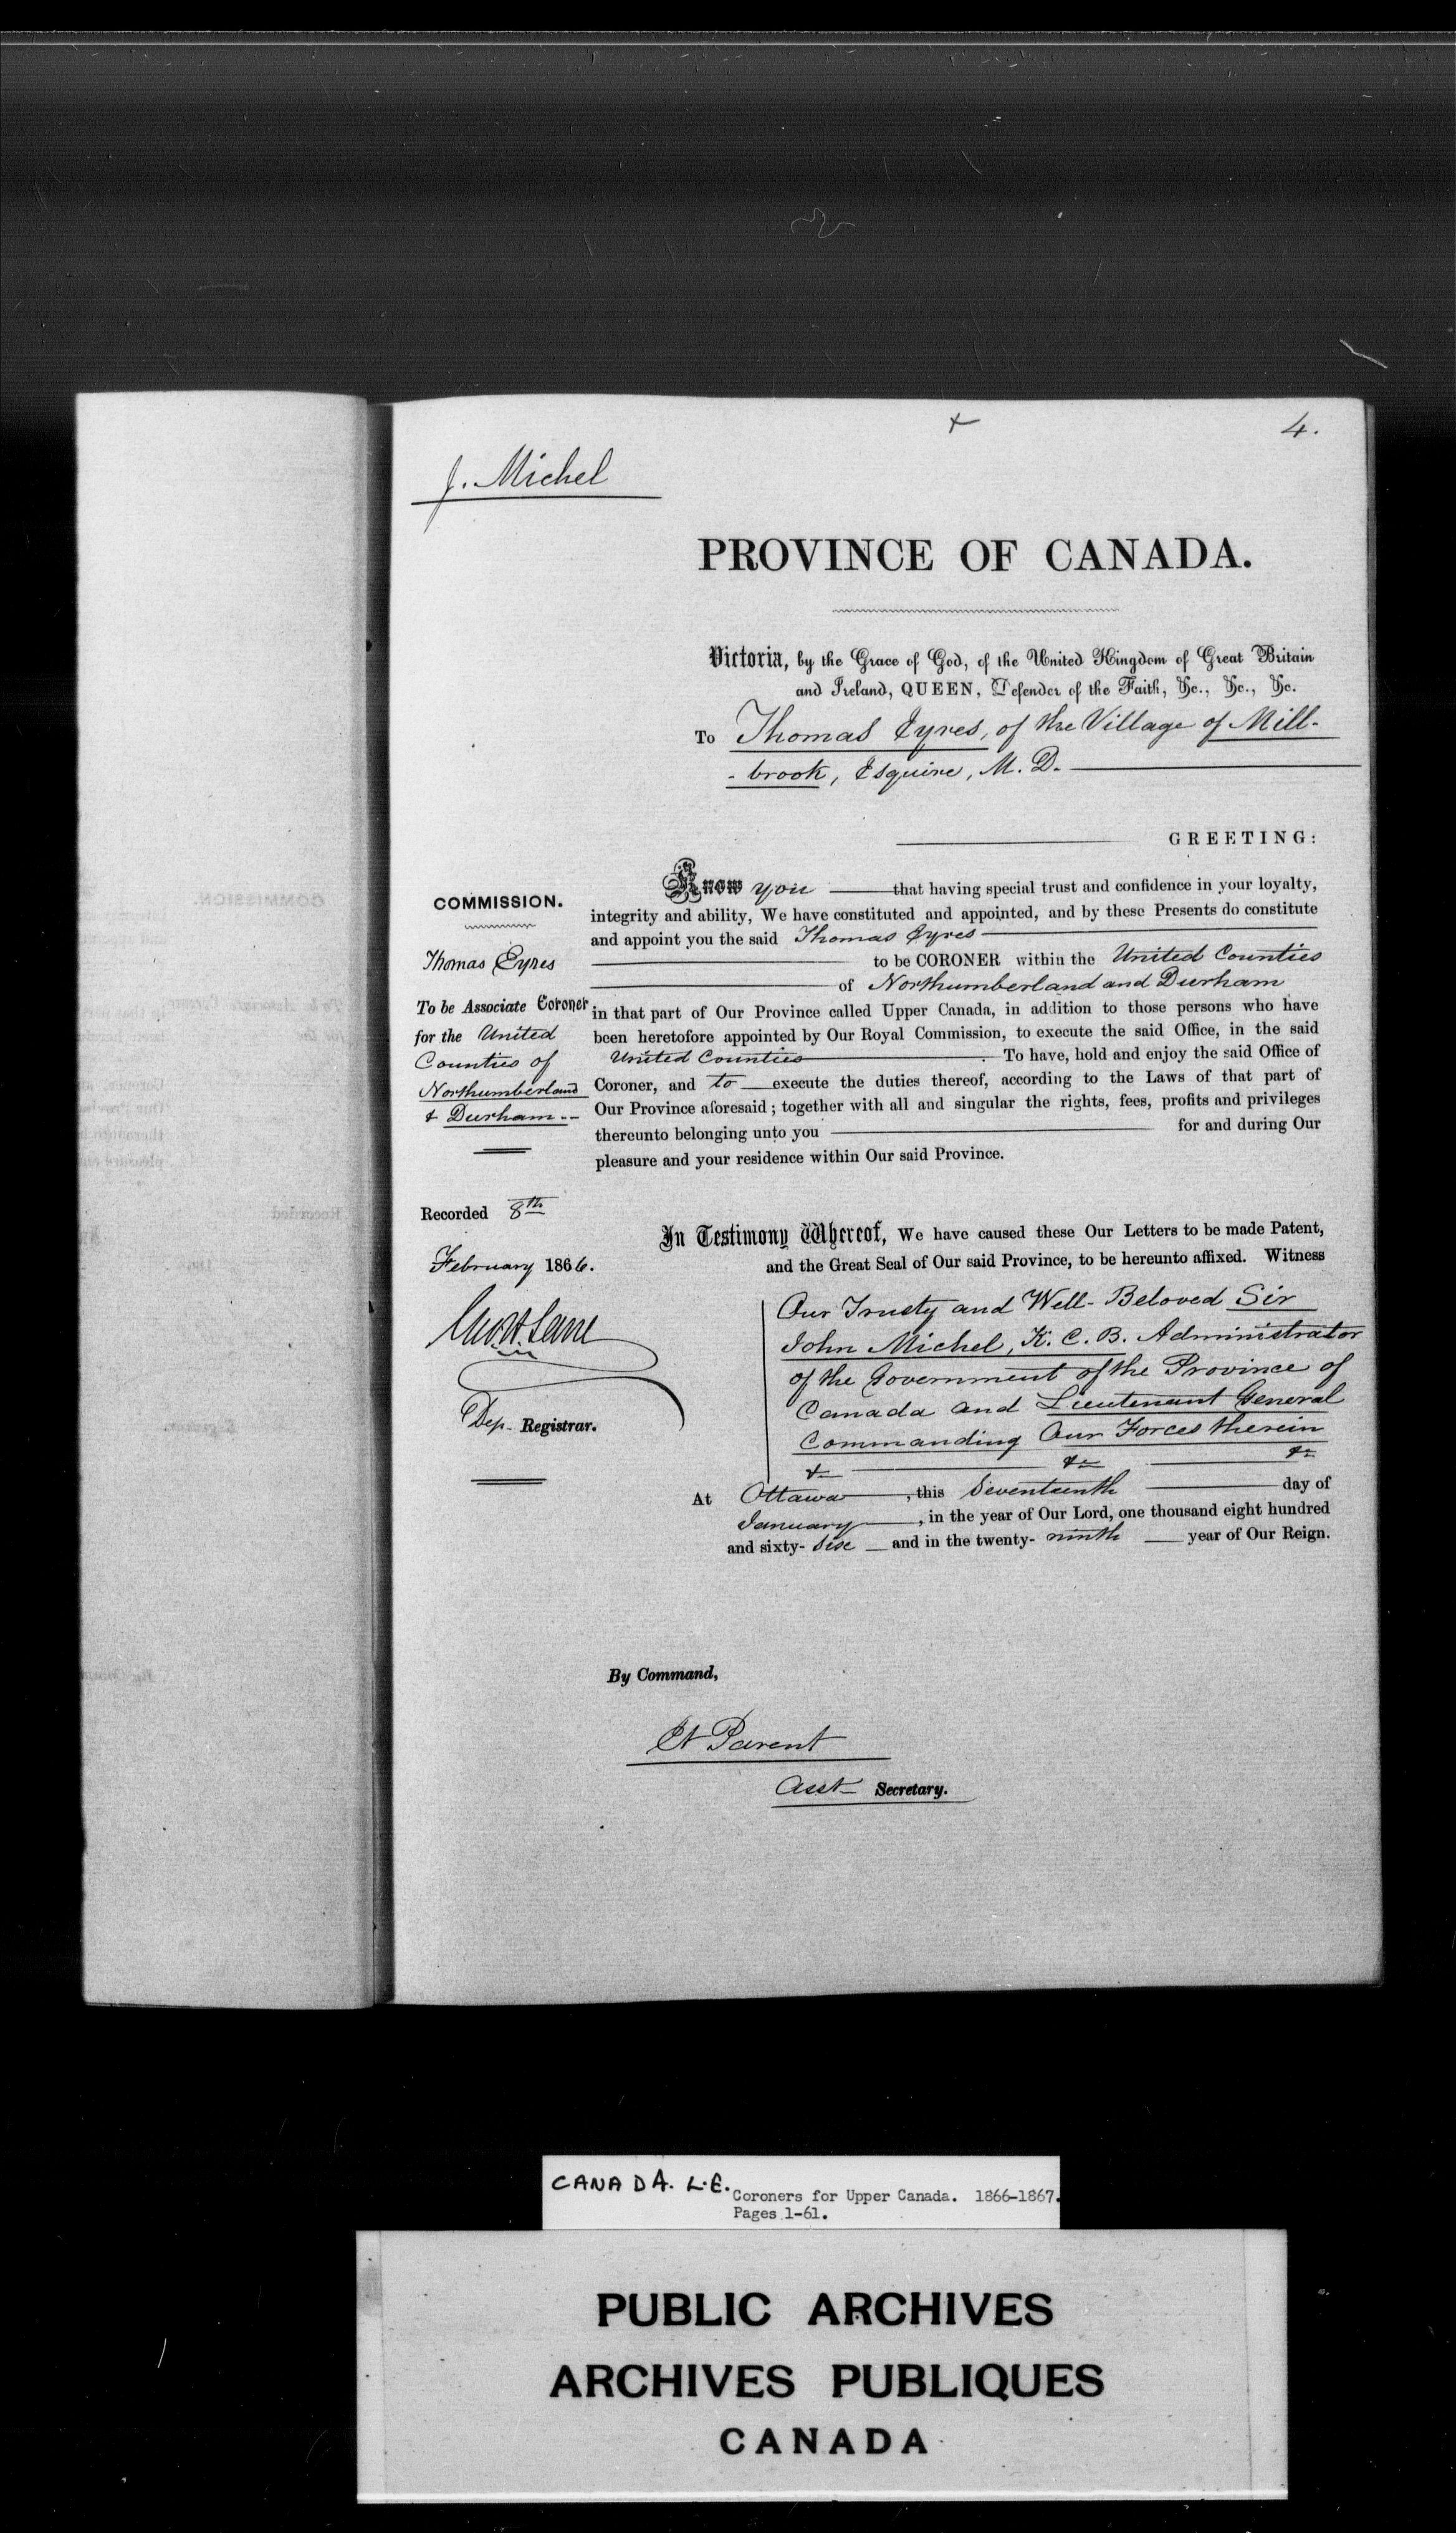 + 4.
J. Michel
PROVINCE OF CANADA.
Victoria, by the Grace of God, of the United Kingdom of Great Britain
and Ireland, QUEEN, Defender of the Faith, &c., &c., &c.
To Thomas Eyres, of the Village of Mill-
- brook, Esquire, M. D.
GREETING:
COMMISSION.
Thomas Eyres
To be Associate Coroner
for the United
Counties of
Northumberland
& Durham --
Recorded 8th
February 1866.
Dep. Registrar.
Know you that having special trust and confidence in your loyalty,
integrity and ability, We have constituted and appointed, and by these Presents do constitute
and appoint you the said Thomas Eyres
to be CORONER within the United Counties
of Northumberland and Durham
in that part of Our Province called Upper Canada, in addition to those persons who have
been heretofore appointed by Our Royal Commission, to execute the said Office, in the said
United Counties . To have, hold and enjoy the said Office of
Coroner, and to execute the duties thereof, according to the Laws of that part of
Our Province aforesaid ; together with all and singular the rights, fees, profits and privileges
thereunto belonging unto you for and during Our
pleasure and your residence within Our said Province.
In Testimony Whereof, We have caused these Our Letters to be made Patent,
and the Great Seal of Our said Province, to be hereunto affixed. Witness
Our Trusty and Well-Beloved Sir
John Michel, K. C. B. Administrator
of the Government of the Province of
Canada and Lieutenant General
Commanding Our Forces therein
&c &c &c
At Ottawa , this Seventeenth day of
January , in the year of Our Lord, one thousand eight hundred
and sixty- six and in the twenty- ninth year of Our Reign.
By Command,
Et Parent
Asst Secretary.
CANADA. L.E. Coroners for Upper Canada. 1866-1867.
Pages 1-61.
PUBLIC ARCHIVES
ARCHIVES PUBLIQUES
CANADA